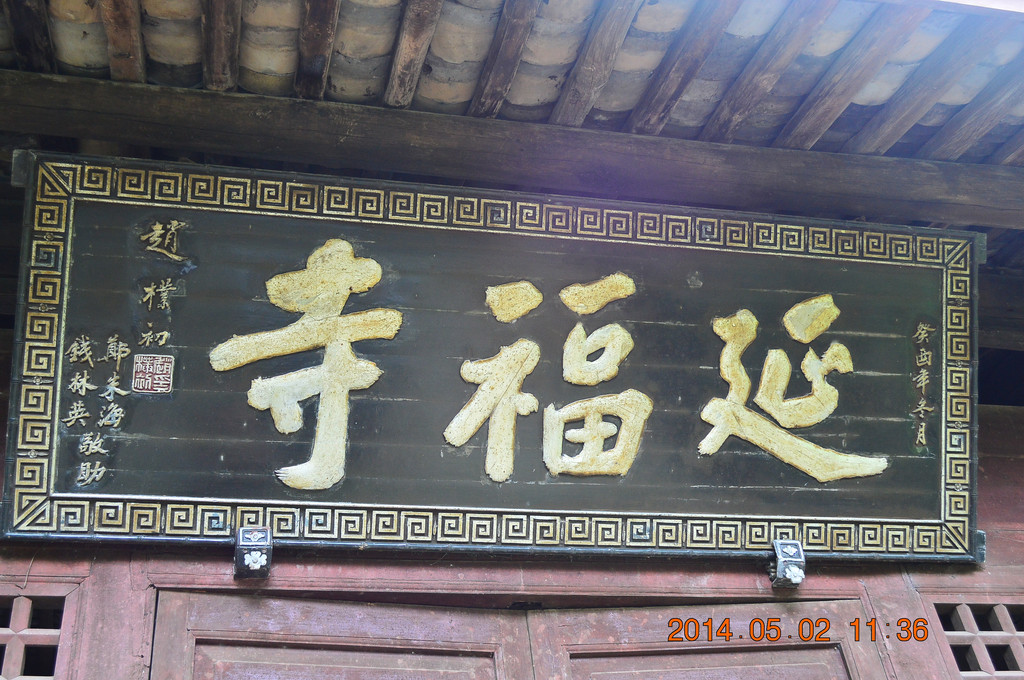 癸酉年冬月
延福寺
趙樸初
鄭朱海
錢林英
敬助
2014.05.02 11:36